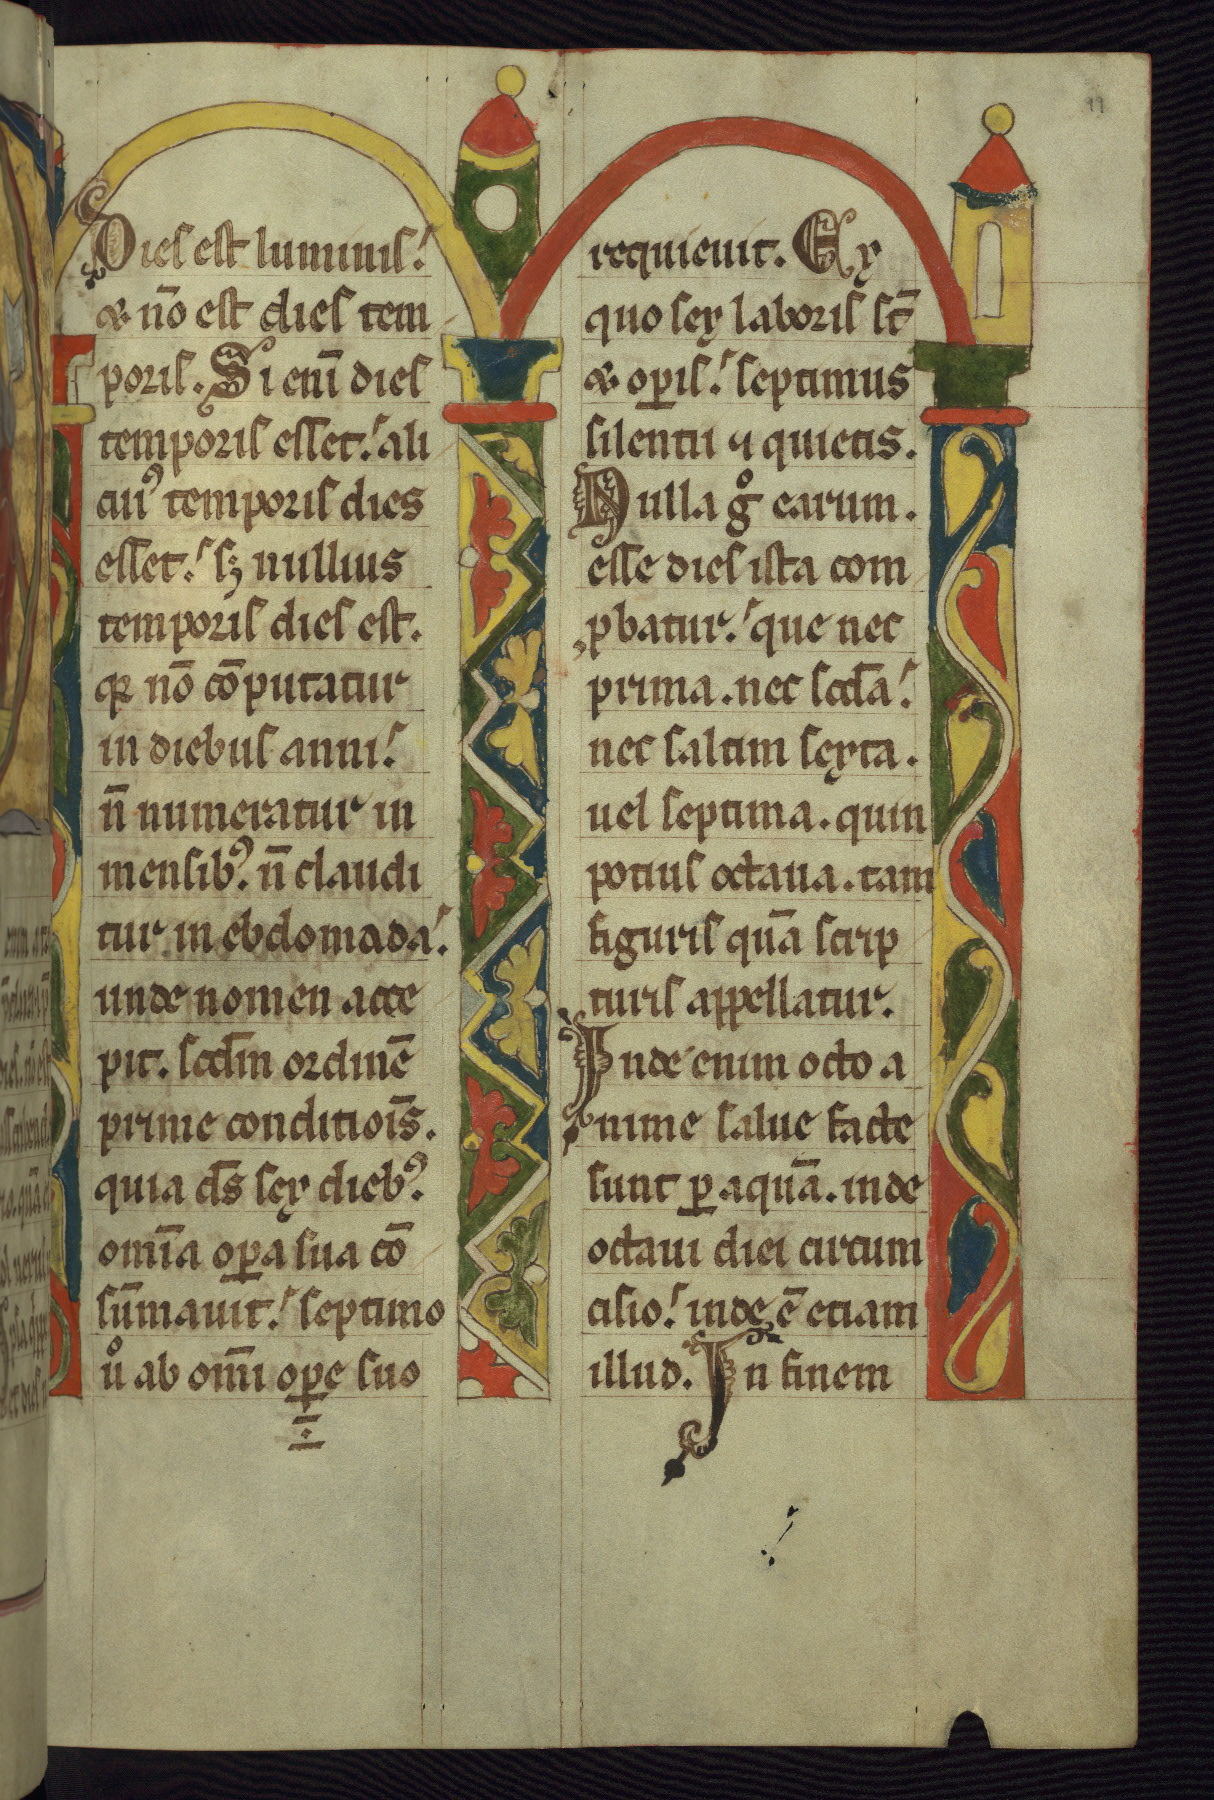 Dies est luminis.
& nō est dies tem
poris. Si eni̅ dies
temporis esset. ali
cui᾽ temporis dies
esset. sꝫ nullius
temporis dies est.
qꝛ nō cōputatur
in diebus anni.
n̄ numeratur in
mensib᾽. n̄ claudi
tur in ebdomada.
unde nomen acce
pit. scd̄m ordinē
prime conditiōis.
quia d̄s sex dieb᾽.
omīa oꝑa sua cō
sūmauit. septimo
uͦ ab om̄i oꝑe suo
requieuit. Ex
quo sex laboris st̄
& oꝑis. septimus
silentii ⁊ quietis.
Nulla gͦ earum.
esse dies ista com
ꝓbatur. que nec
prima. nec scd̄a.
nec saltim sexta.
uel septima. quin
potius octaua. tam
figuris quā scrip
turis appellatur.
Inde enim octo a
nime salue facte
sunt ꝑ aquā. inde
octaui diei circum
cisio. inde ē etiam
illud. In finem